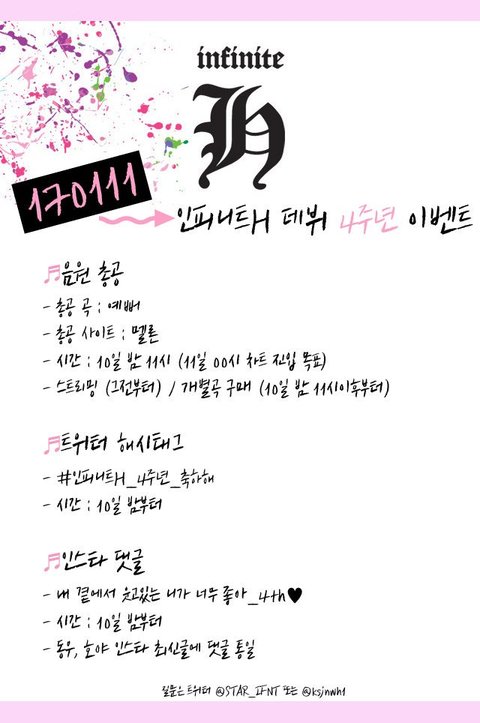 infinite
H
170111
인피니트H 데뷔 4주년 이벤트
음원 총공
- 총공 곡 : 예뻐
- 총공 사이트 : 멜론
- 시간 : 10일 밤 11시 (11일 00시 차트 진입 목표)
- 스트리밍 (그전부터) / 개별곡 구매 (10일 밤 11시이후부터)
트위터 해시태그
- #인피니트H_4주년_축하해
- 시간 : 10일 밤부터
인스타 댓글
- 내 곁에서 웃고있는 니가 너무 좋아_4th♥
- 시간 : 10일 밤부터
- 동우, 호야 인스타 최신글에 댓글 통일
질문은 트위터 @STAR_IFNT 또는 @ksjnwh1